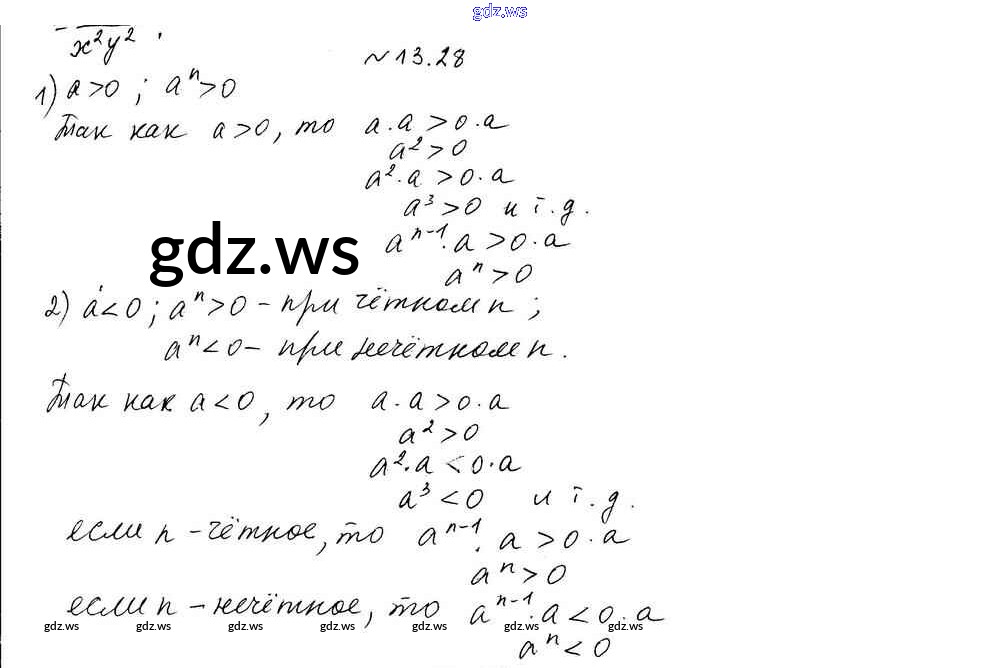 gdz.ws
x²y² .
~13.28
1) a>0 ; aⁿ>0
Так как a>0, то a·a>0·a
a²>0
a²·a>0·a
a³>0 и т.д.
gdz.ws
aⁿ⁻¹·a>0·a
aⁿ>0
2) a<0; aⁿ>0 – при чётном n;
aⁿ<0 – при нечётном n.
Так как a<0, то a·a>0·a
a²>0
a²·a<0·a
a³<0 и т.д.
если n – чётное, то aⁿ⁻¹·a>0·a
aⁿ>0
если n – нечётное, то aⁿ⁻¹·a<0·a
gdz.ws gdz.ws gdz.ws gdz.ws gdz.ws gdz.ws gdz.ws
aⁿ<0